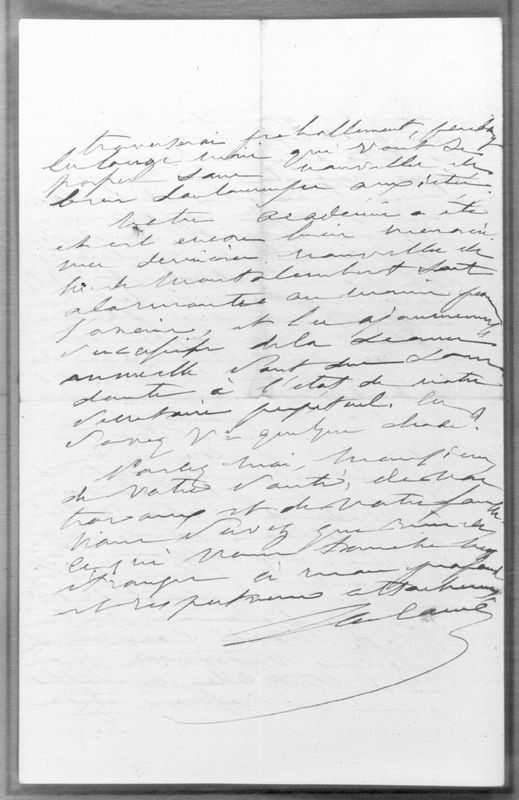 traverserai probablement, pendant
la longue nuit qui vont se
passer sans nouvelles de
bien douloureuse anxiété.
Votre académie a été
et est encore bien menacée
mes dernières nouvelles de
M. de Montalembert sont
alarmantes au moins pour
l'avenir, et les ajournements
successifs de la séance
annuelle sont dus sans
doute à l'état de votre
secrétaire perpétuel. En
savez vs quelque chose?
Parlez moi, Monsieur
de votre santé, de vos
travaux et de votre famille
Vous savez que rien de
ce qui vous touche n'est
étranger à mon profond
et respectueux attachement